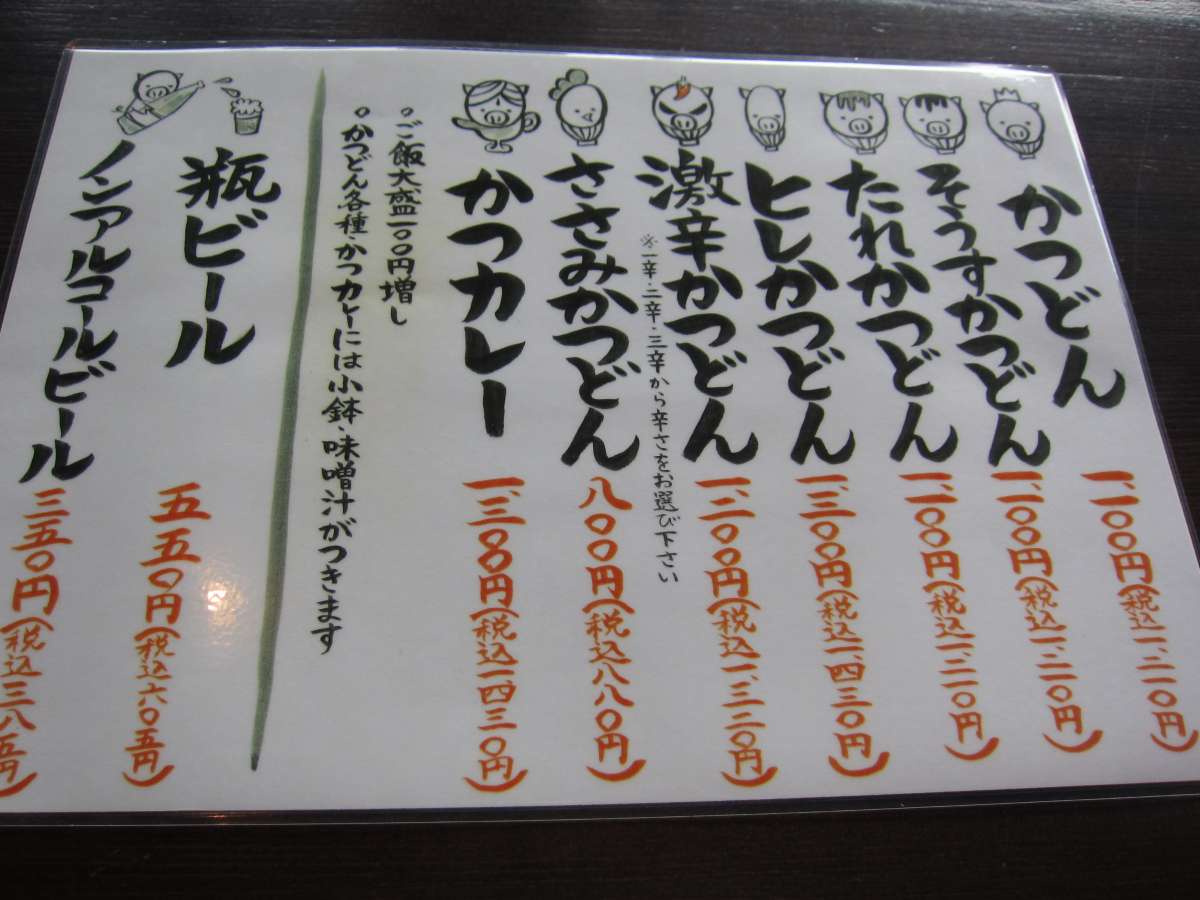 かつどん 一、一〇〇円(税込一、二一〇円)
そうすかつどん 一、一〇〇円(税込一、二一〇円)
たれかつどん 一、一〇〇円(税込一、二一〇円)
ヒレかつどん 一、三〇〇円(税込一、四三〇円)
激辛かつどん 一、二〇〇円(税込一、三二〇円)
※一辛・二辛・三辛から辛さをお選び下さい
ささみかつどん 八〇〇円(税込八八〇円)
かつカレー 一、三〇〇円(税込一、四三〇円)
◦ご飯大盛一〇〇円増し
◦かつどん各種・かつカレーには小鉢・味噌汁がつきます
瓶ビール 五五〇円(税込六〇五円)
ノンアルコールビール 三五〇円(税込三八五円)